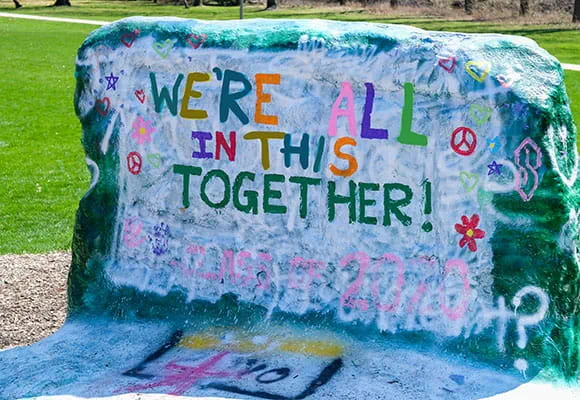 WE'RE ALL
IN THIS
TOGETHER!
CLASS OF 2020
?